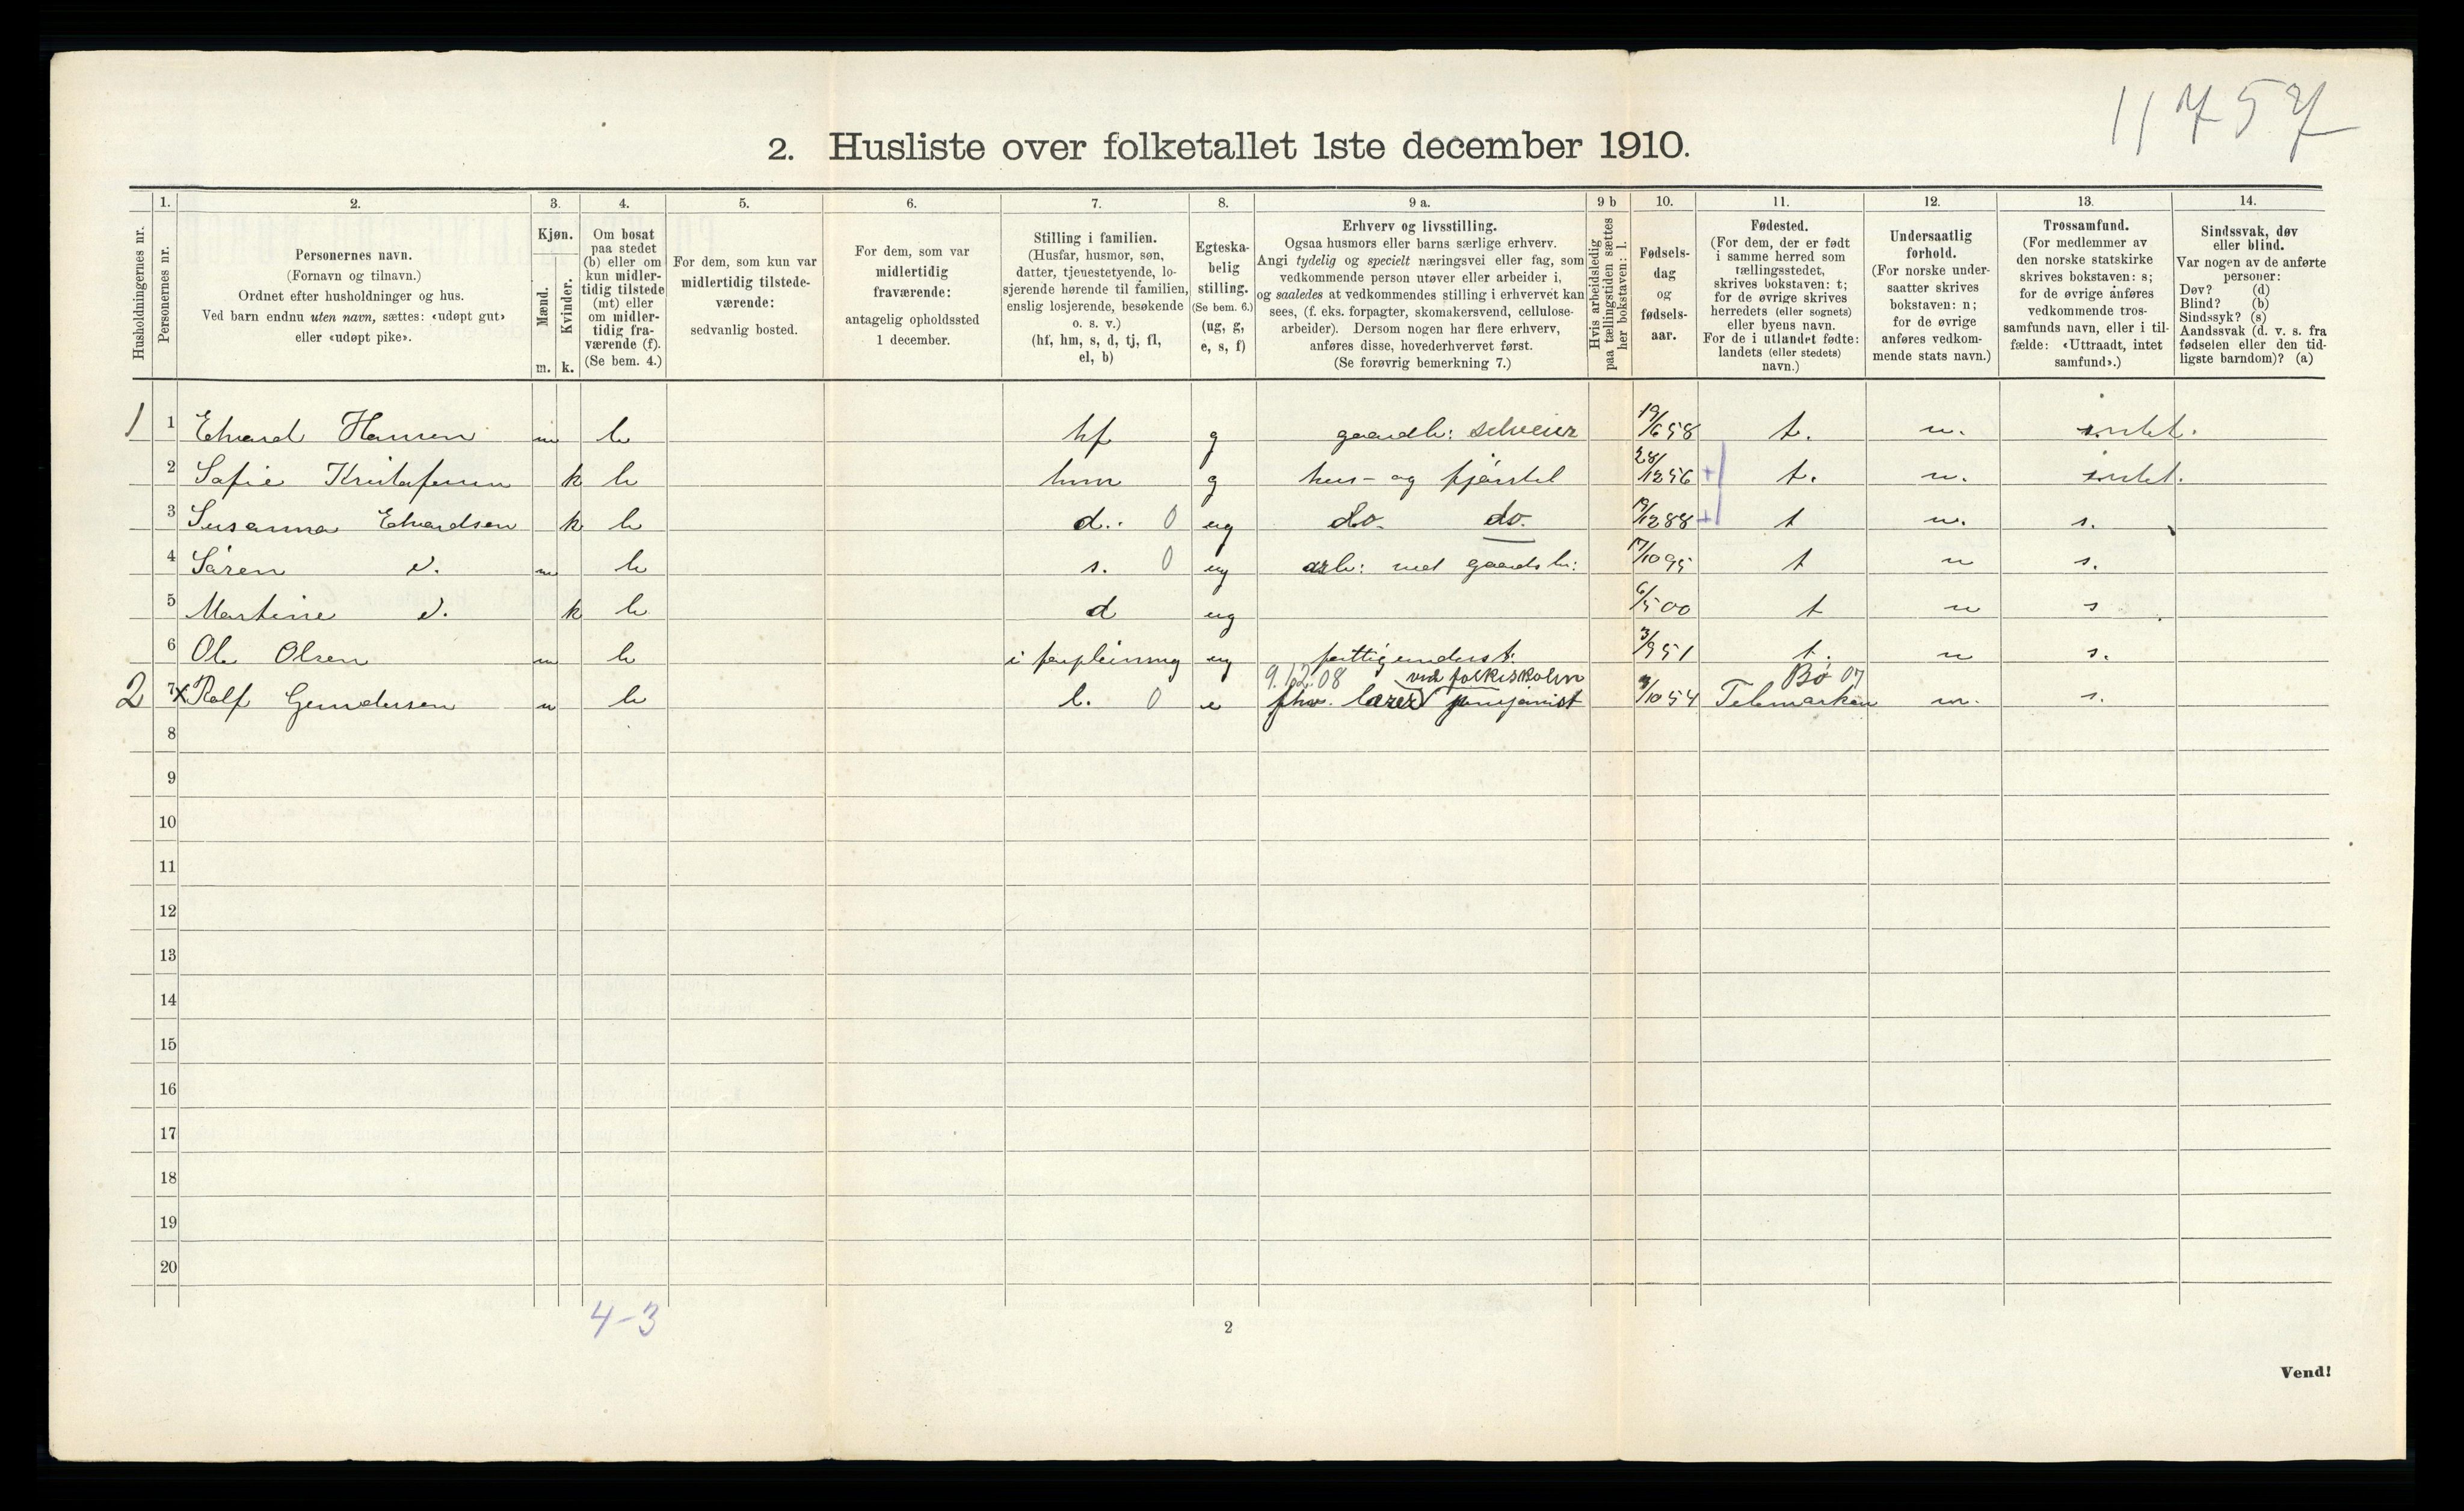 11757
2. Husliste over folketallet 1ste december 1910.
Husholdningernes nr.
1. Personernes nr.
2. Personernes navn.
(Fornavn og tilnavn.)
Ordnet efter husholdninger og hus.
Ved barn endnu uten navn, sættes: «udøpt gut»
eller «udøpt pike».
3. Kjøn.
Mænd. m.
Kvinder. k.
4. Om bosat
paa stedet
(b) eller om
kun midler-
tidig tilstede
(mt) eller
om midler-
tidig fra-
værende (f).
(Se bem. 4.)
5. For dem, som kun var
midlertidig tilstede-
værende:
sedvanlig bosted.
6. For dem, som var
midlertidig
fraværende:
antagelig opholdssted
1 december.
7. Stilling i familien.
(Husfar, husmor, søn,
datter, tjenestetyende, lo-
sjerende hørende til familien,
enslig losjerende, besøkende
o. s. v.)
(hf, hm, s, d, tj, fl,
el, b)
8. Egteska-
belig
stilling.
(Se bem. 6.)
(ug, g,
e, s, f)
9 a. Erhverv og livsstilling.
Ogsaa husmors eller barns særlige erhverv.
Angi tydelig og specielt næringsvei eller fag, som
vedkommende person utøver eller arbeider i,
og saaledes at vedkommendes stilling i erhvervet kan
sees, (f. eks. forpagter, skomakersvend, cellulose-
arbeider). Dersom nogen har flere erhverv,
anføres disse, hovederhvervet først.
(Se forøvrig bemerkning 7.)
9 b Hvis arbeidsledig
paa tællingstiden sættes
her bokstaven: l.
10. Fødsels-
dag
og
fødsels-
aar.
11. Fødested.
(For dem, der er født
i samme herred som
tællingsstedet,
skrives bokstaven: t;
for de øvrige skrives
herredets (eller sognets)
eller byens navn.
For de i utlandet fødte:
landets (eller stedets)
navn.)
12. Undersaatlig
forhold.
(For norske under-
saatter skrives
bokstaven: n;
for de øvrige
anføres vedkom-
mende stats navn.)
13. Trossamfund.
(For medlemmer av
den norske statskirke
skrives bokstaven: s;
for de øvrige anføres
vedkommende tros-
samfunds navn, eller i til-
fælde: «Uttraadt, intet
samfund».)
14. Sindssvak, døv
eller blind.
Var nogen av de anførte
personer:
Døv? (d)
Blind? (b)
Sindssyk? (s)
Aandssvak (d. v. s. fra
fødselen eller den tid-
ligste barndom)? (a)
1 1 Edvard Hansen m b hf g gaardb: selveier 19/6 58 t. n. intet.
2 Sofie Kristofersen k b hm g hus- og fjøsstel 28/12 56 t. n. intet.
3 Susanna Edvardsen k b d. 0 ug do. do. 19/12 88 t n. s.
4 Søren d. m b s. 0 ug arb: ved gaardsb: 17/10 95 t n s.
5 Martine d. k b d ug 6/5 00 t n s
6 Ole Olsen m b i forpleining ug fattigunderst. 3/9 51 t. n s.
9.12.08 ved folkeskolen Bø 07
2 7 x Rolf Gundersen m b l. 0 e fhv. lærer pensjonist 3/10 54 Telemarken n. s.
8
9
10
11
12
13
14
15
16
17
18
19
20
4-3
2
Vend!